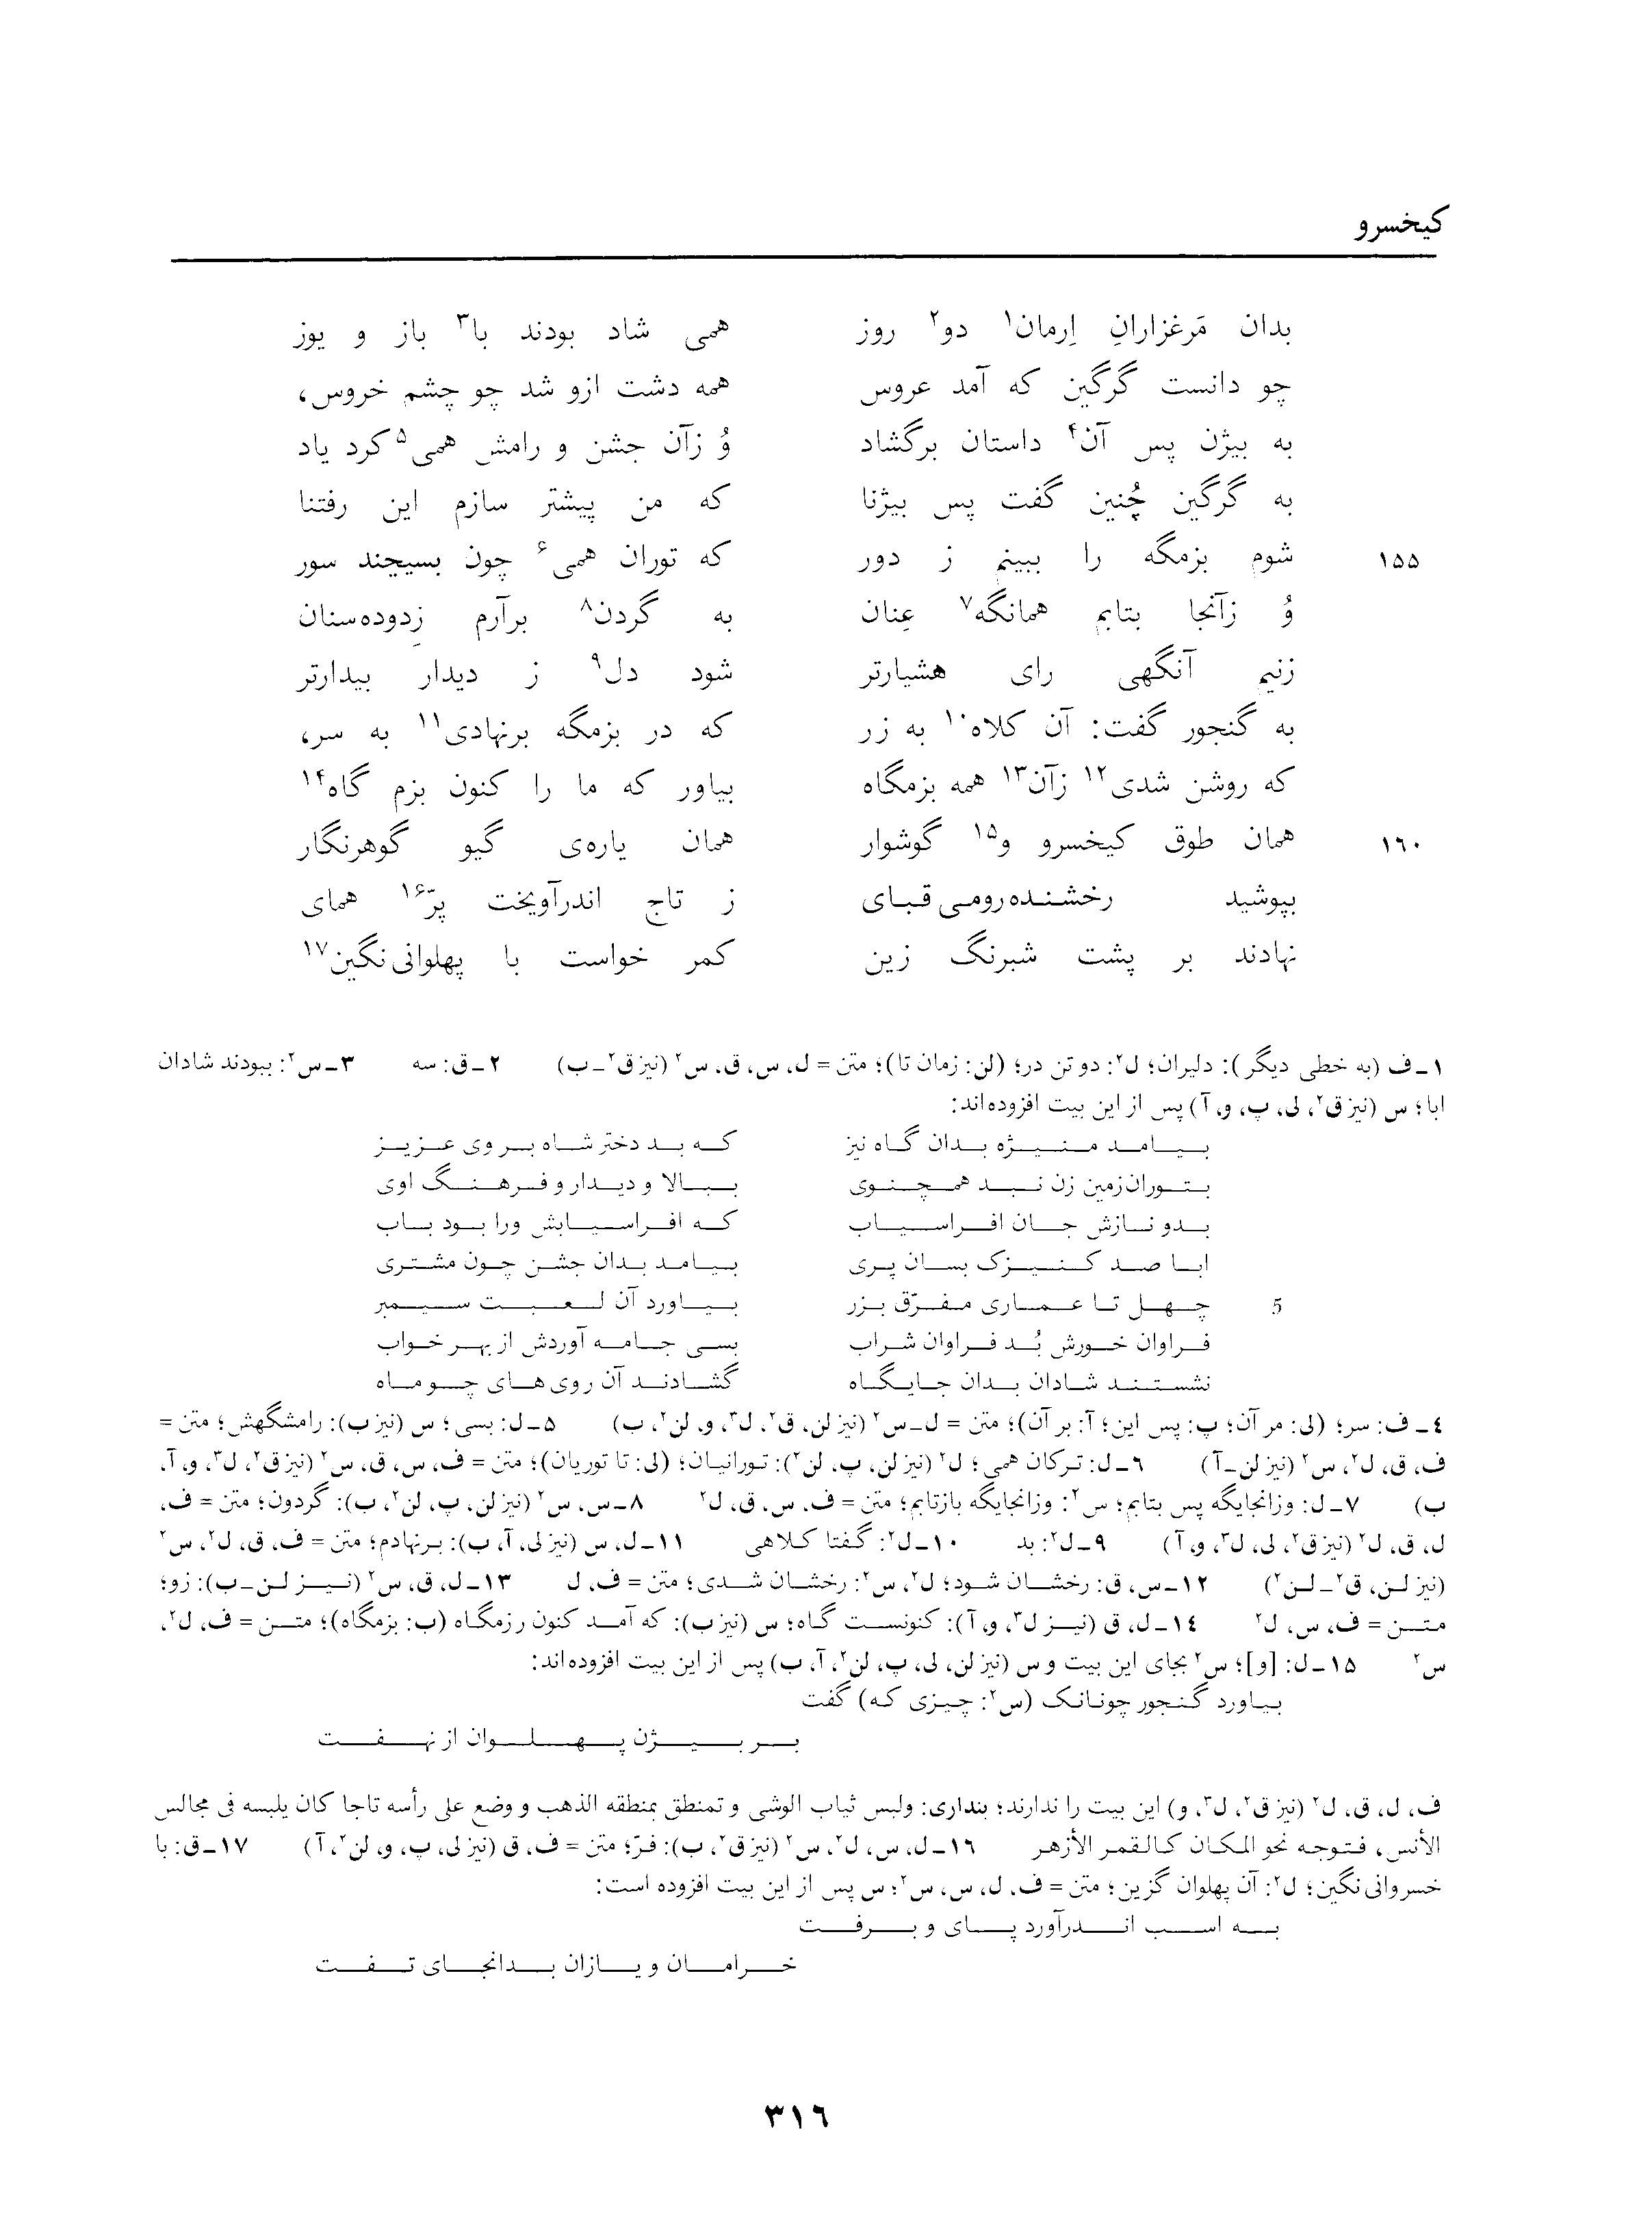 کیخسرو
بدان مَرغزارانِ اِرمان۱ دو۲ روز همی شاد بودند با۳ باز و یوز
چو دانست گرگین که آمد عروس همه دشت ازو شد چو چشم خروس،
به بیژن پس آن۴ داستان برگشاد وُ زآن جشن و رامش همی۵ کرد یاد
به گرگین چُنین گفت پس بیژنا که من پیشتر سازم این رفتنا
۱۵۵ شوم بزمگه را ببینم ز دور که توران همی۶ چون بسیچند سور
وُ زآنجا بتابم همانگه۷ عِنان به گردن۸ برآرم زِدوده‌سنان
زنیم آنگهی رای هشیارتر شود دل۹ ز دیدار بیدارتر
به گنجور گفت: آن کلاه۱۰ به زر که در بزمگه برنهادی۱۱ به سر،
که روشن شدی۱۲ زآن۱۳ همه بزمگاه بیاور که ما را کنون بزم گاه۱۴
۱۶۰ همان طوق کیخسرو و۱۵ گوشوار همان یاره‌ی گیو گوهرنگار
بپوشید رخشنده رومی قبای ز تاج اندرآویخت پرّ۱۶ همای
نهادند بر پشت شبرنگ زین کمر خواست با پهلوانی‌نگین۱۷
۱ـ ف (به خطی دیگر): دلیران؛ ل۲: دو تن در؛ (لن: زمان تا)؛ متن = ل، س، ق، س۲ (نیز ق۲ـ ب) ۲ـ ق: سه ۳ـ س۲: ببودند شادان
ابا؛ س (نیز ق۲، لی، پ، و، آ) پس از این بیت افزوده‌اند:
بیامد منیژه بدان گاه نیز که بد دختر شاه بر وی عزیز
بتوران زمین زن نبد همچنوی ببالا و دیدار و فرهنگ اوی
بدو نازش جان افراسیاب که افراسیابش ورا بود باب
ابا صد کنیزک بسان پری بیامد بدان جشن چون مشتری
5 چهل تا عماری مفرّق بزر بیاورد آن لعبت سیمبر
فراوان خورش بُد فراوان شراب بسی جامه آوردش از بهر خواب
نشستند شادان بدان جایگاه گشادند آن روی‌های چو ماه
٤ـ ف: سر؛ (لی: مر آن؛ پ: پس این؛ آ: بر آن)؛ متن = ل ـ س۲ (نیز لن، ق۲، ل۳، و، لن۲، ب) ۵ـ ل: بسی؛ س (نیز ب): رامشگهش؛ متن =
ف، ق، ل۲، س۲ (نیز لن ـ آ) ٦ـ ل: ترکان همی؛ ل۲ (نیز لن، پ، لن۲): تورانیان؛ (لی: تا توریان)؛ متن = ف، س، ق، س۲ (نیز ق۲، ل۳، و، آ،
ب) ۷ـ ل: وزانجایگه پس بتابم؛ س۲: وزانجایگه بازتابم؛ متن = ف، س، ق، ل۲ ۸ـ س، س۲ (نیز لن، پ، لن۲، ب): گردون؛ متن = ف،
ل، ق، ل۲ (نیز ق۲، لی، ل۳، و، آ) ۹ـ ل۲: بد ۱۰ـ ل۲: گفتا کلاهی ۱۱ـ ل، س (نیز لی، آ، ب): برنهادم؛ متن = ف، ق، ل۲، س۲
(نیز لن، ق۲ـ لن۲) ۱۲ـ س، ق: رخشان شود؛ ل۲، س۲: رخشان شدی؛ متن = ف، ل ۱۳ـ ل، ق، س۲ (نیز لن ـ ب): زو؛
متن = ف، س، ل۲ ١٤ـ ل، ق (نیز ل۳، و، آ): کنونست گاه؛ س (نیز ب): که آمد کنون رزمگاه (ب: بزمگاه)؛ متن = ف، ل۲،
س۲ ۱۵ـ ل: [و]؛ س۲ بجای این بیت و س (نیز لن، لی، پ، لن۲، آ، ب) پس از این بیت افزوده‌اند:
بیاورد گنجور چونانک (س۲: چیزی که) گفت
بر بیژن پهلوان از نهفت
ف، ل، ق، ل۲ (نیز ق۲، ل۳، و) این بیت را ندارند؛ بنداری: ولبس ثیاب الوشی و تمنطق بمنطقه الذهب و وضع علی رأسه تاجا کان یلبسه فی مجالس
الأنس، فتوجه نحو المکان کالقمر الأزهر ١٦ـ ل، س، ل۲، س۲ (نیز ق۲، ب): فرّ؛ متن = ف، ق (نیز لی، پ، و، لن۲، آ) ۱۷ـ ق: با
خسروانی نگین؛ ل۲: آن پهلوان گزین؛ متن = ف، ل، س، س۲؛ س پس از این بیت افزوده است:
به اسب اندرآورد پای و برفت
خرامان و یازان بدانجای تفت
٣١٦